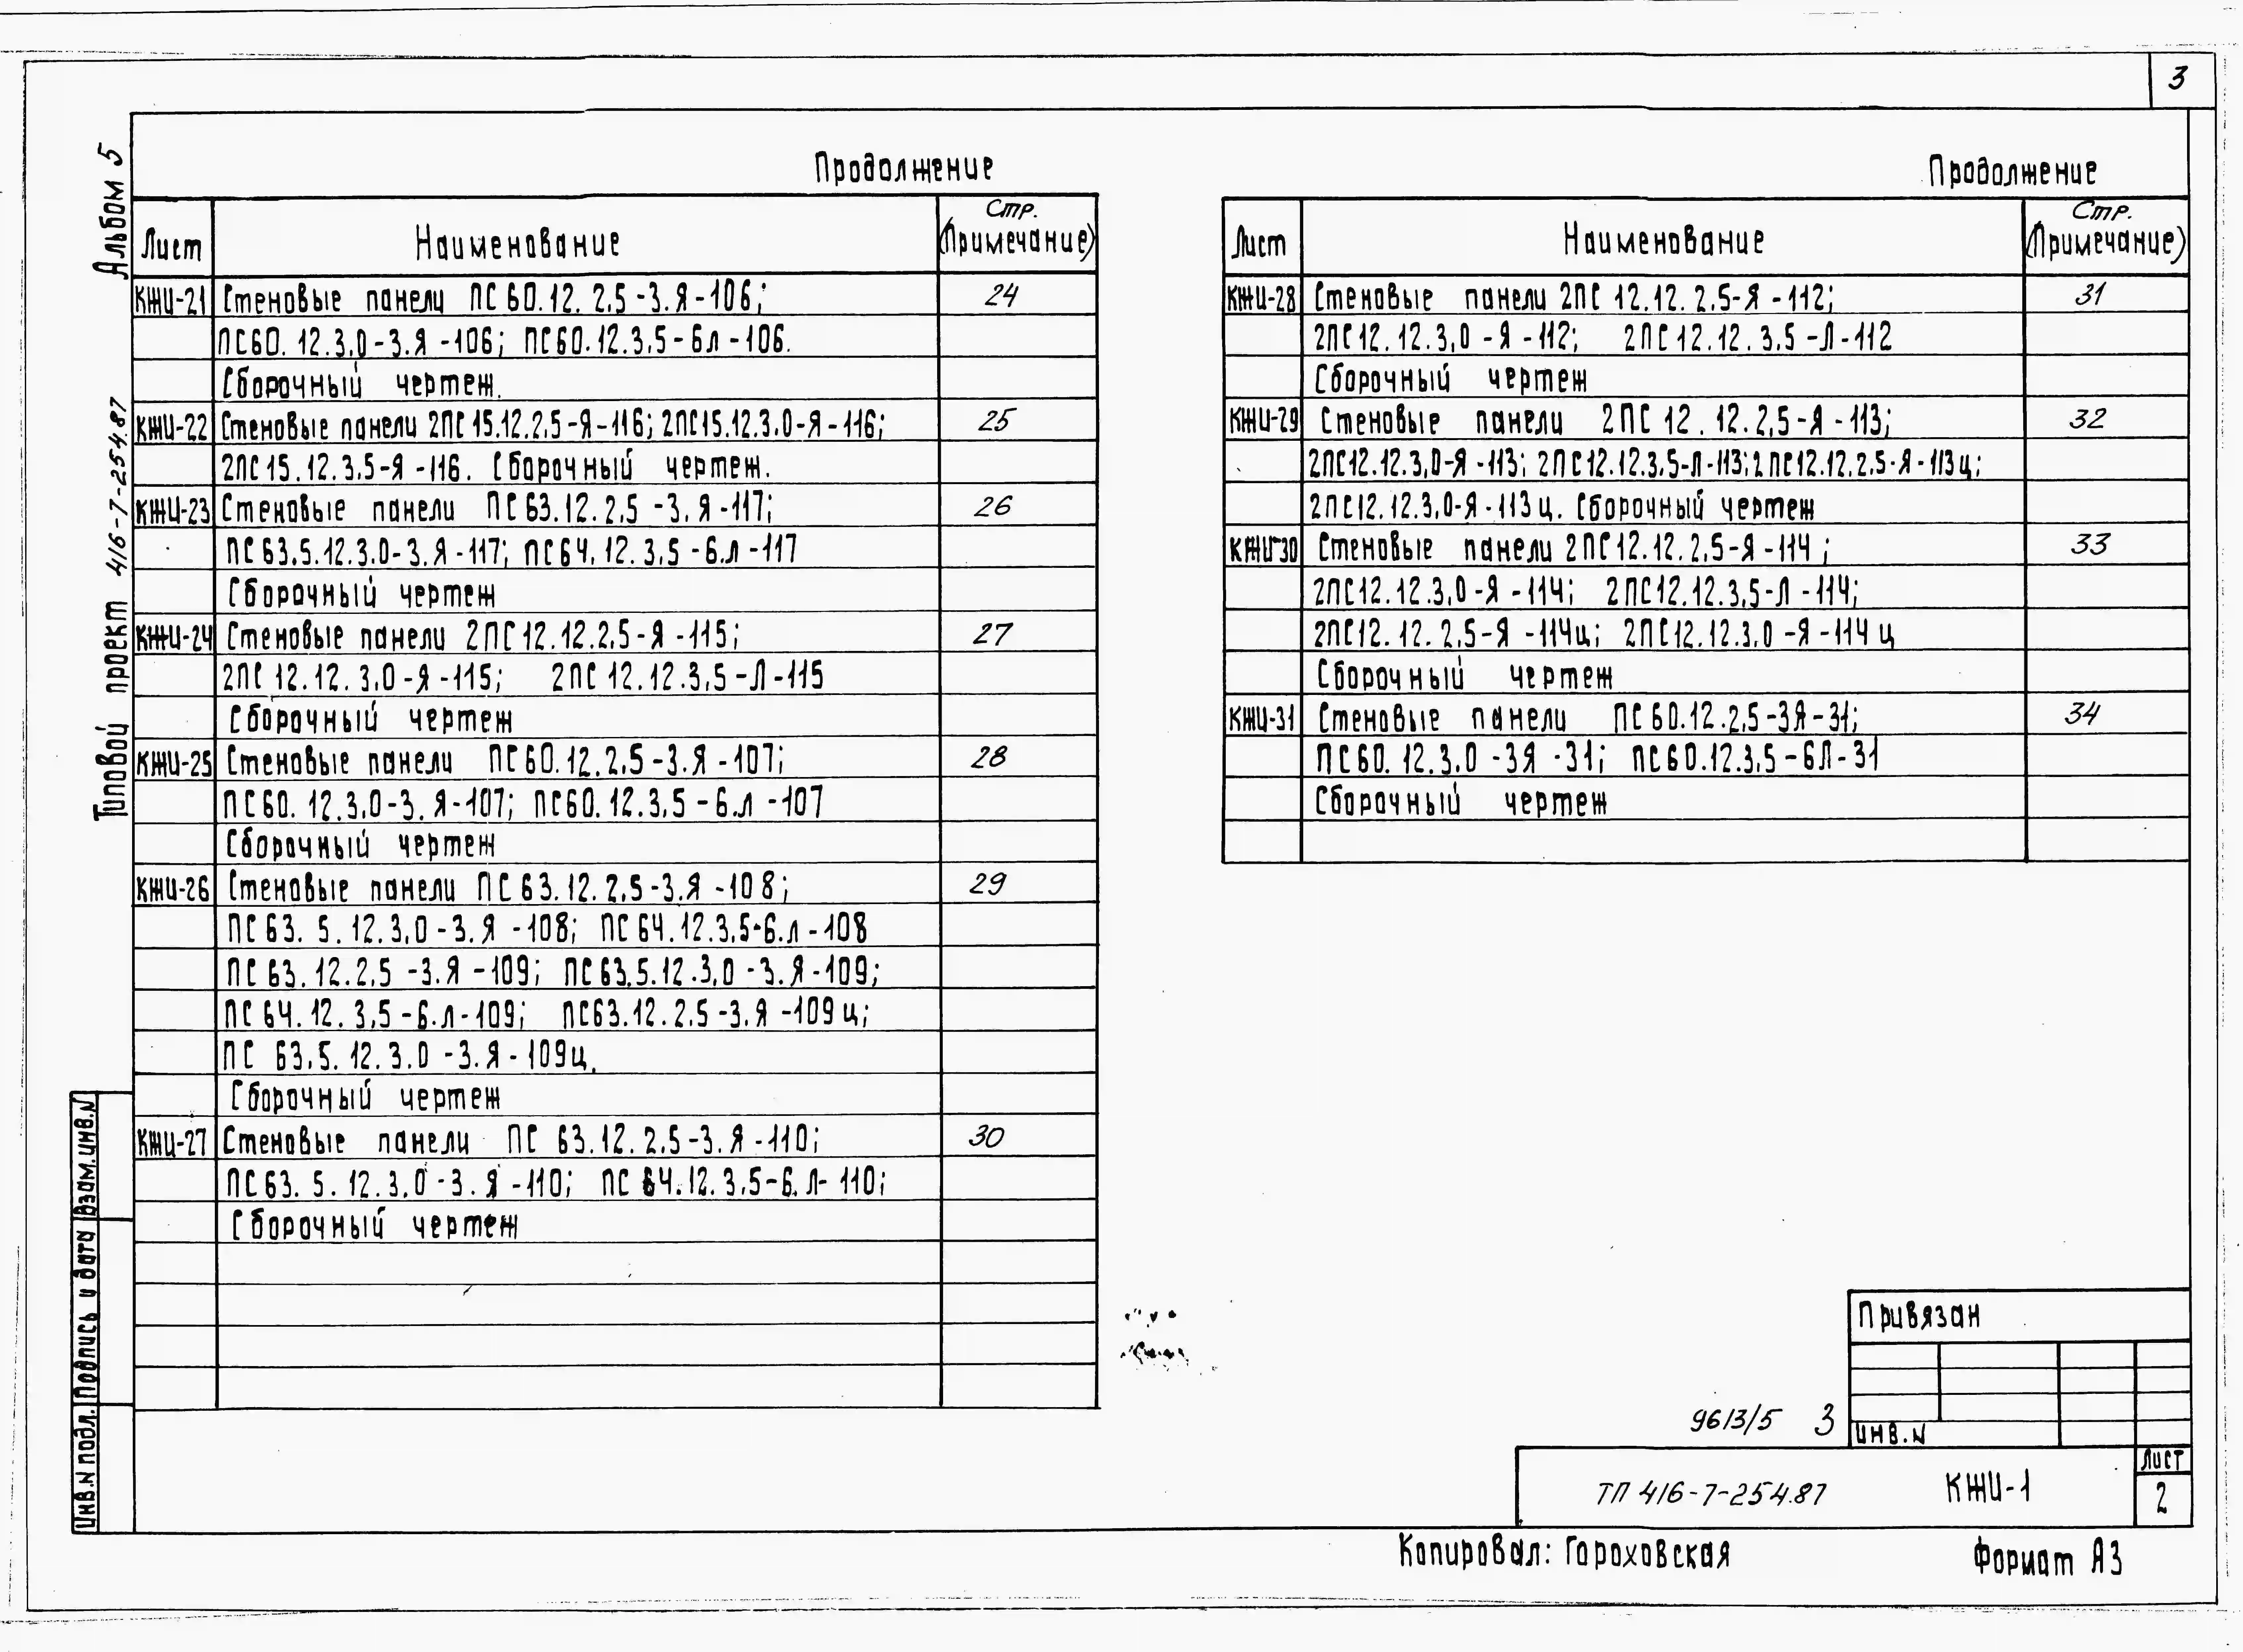 3
Альбом 5
Типовой проект 416-7-254.87
Продолжение
Лист Наименование Стр. (Примечание)
КЖИ-21 Стеновые панели ПС 60.12. 2,5 -3.Я -106; 24
ПС60. 12.3,0 -3.Я -106; ПС60.12.3,5 - 6л -106.
Сборочный чертеж.
КЖИ-22 Стеновые панели 2ПС 15.12.2,5-Я-116; 2ПС15.12.3,0-Я-116; 25
2ПС15.12.3,5-Я -116. Сборочный чертеж.
КЖИ-23 Стеновые панели ПС 63.12.2,5 -3.Я -117; 26
ПС 63,5.12.3,0-3.Я -117; ПС 64.12.3,5 -6.л -117
Сборочный чертеж
КЖИ-24 Стеновые панели 2ПС 12.12.2,5-Я -115; 27
2ПС 12.12.3,0 -Я -115; 2ПС 12.12.3,5 -Л -115
Сборочный чертеж
КЖИ-25 Стеновые панели ПС 60.12.2,5 -3.Я -107; 28
ПС 60.12.3,0-3.Я-107; ПС60.12.3,5 -6.л -107
Сборочный чертеж
КЖИ-26 Стеновые панели ПС 63.12.2,5-3.Я -108; 29
ПС 63.5.12.3,0 -3.Я -108; ПС 64.12.3,5-6.л -108
ПС 63.12.2,5 -3.Я -109; ПС 63,5.12.3,0 -3.Я-109;
ПС 64.12.3,5 -6.л-109; ПС63.12.2,5 -3.Я -109 ц;
ПС 63,5.12.3.0 -3.Я - 109ц.
Сборочный чертеж
КЖИ-27 Стеновые панели ПС 63.12.2,5-3.Я -110; 30
ПС 63.5.12.3,0 -3.Я -110; ПС 64.12.3,5-6.Л- 110;
Сборочный чертеж
Продолжение
Лист Наименование Стр. (Примечание)
КЖИ-28 Стеновые панели 2ПС 12.12.2,5-Я -112; 31
2ПС12.12.3,0 -Я -112; 2ПС 12.12.3,5 -Л-112
Сборочный чертеж
КЖИ-29 Стеновые панели 2ПС 12.12.2,5-Я -113; 32
2ПС12.12.3,0-Я -113; 2ПС12.12.3,5-Л-113; 2ПС12.12.2,5-Я-113ц;
2ПС12.12.3,0-Я-113ц. Сборочный чертеж
КЖИ-30 Стеновые панели 2ПС12.12.2,5-Я -114; 33
2ПС12.12.3,0 -Я -114; 2ПС12.12.3,5-Л -114;
2ПС12.12.2,5-Я -114ц; 2ПС12.12.3,0 -Я -114 ц
Сборочный чертеж
КЖИ-31 Стеновые панели ПС 60.12.2,5-3Я-31; 34
ПС60.12.3,0 -3Я -31; ПС60.12.3,5 -6Л-31
Сборочный чертеж
Взам.инв.N
Подпись и дата
Инв.N подл.
Привязан
Инв.N
9613/5 3
ТП 416-7-254.87 КЖИ-1
Лист
2
Копировал: Гороховская Формат А3